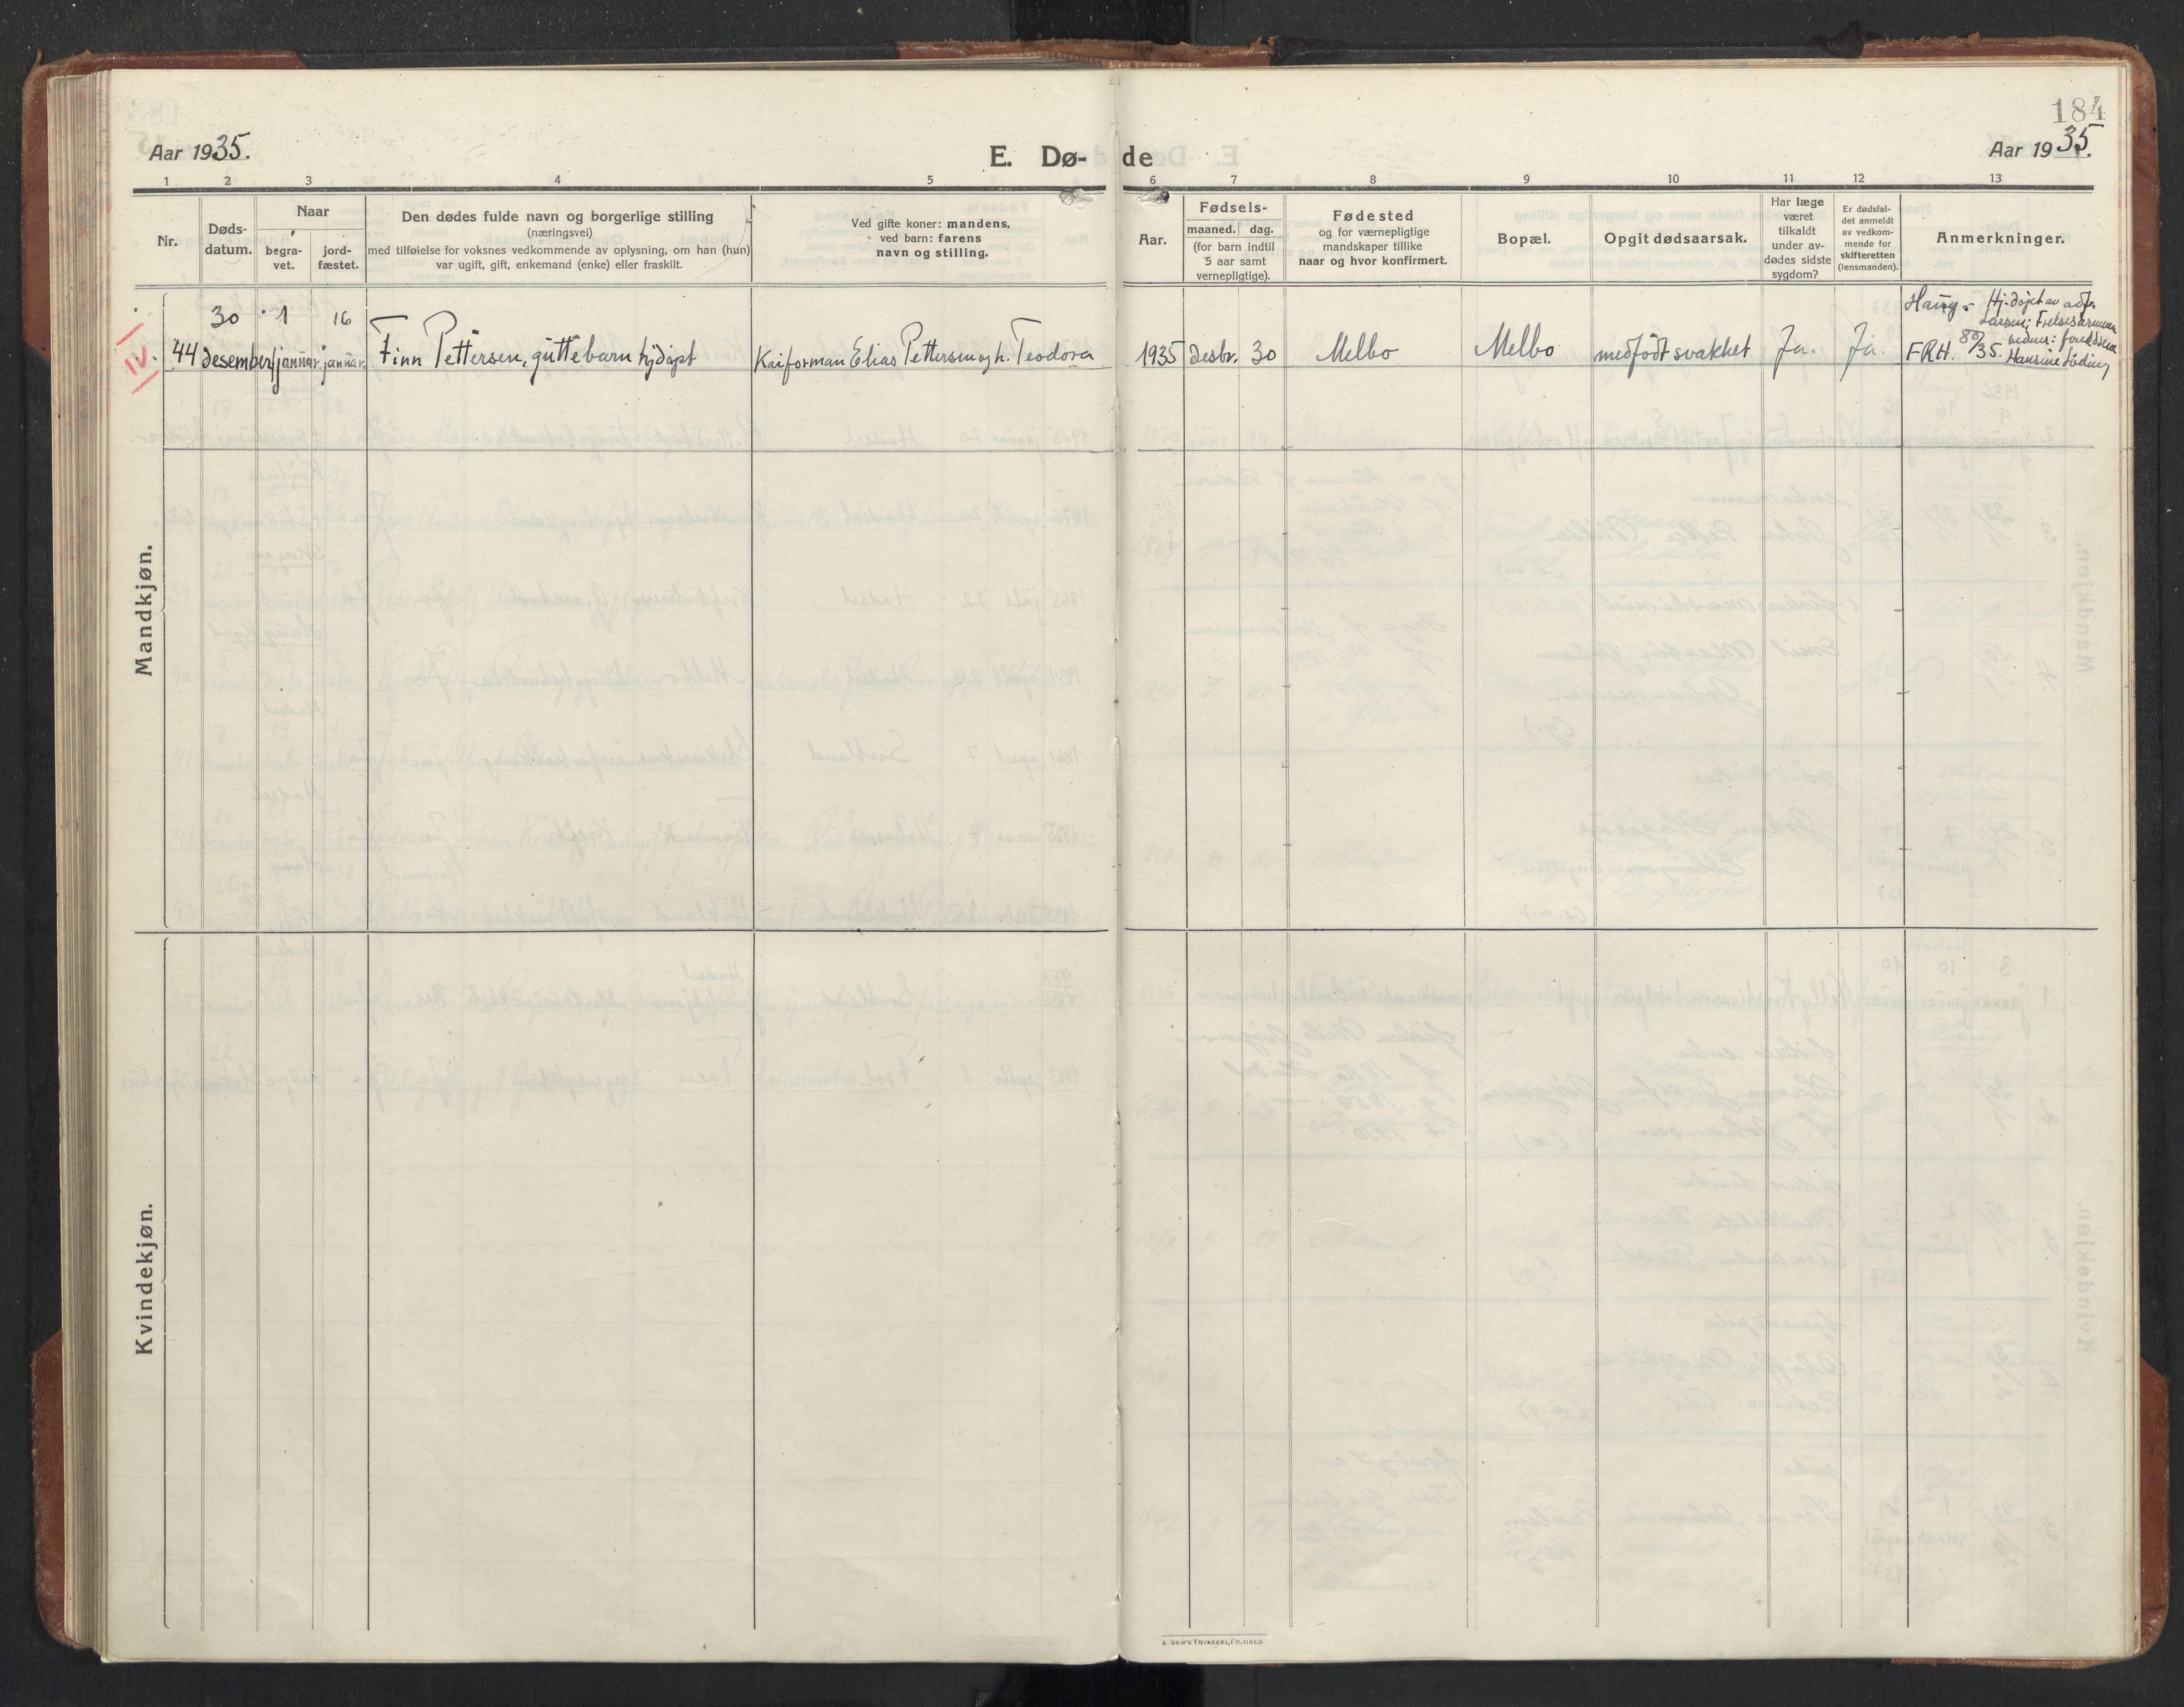 184
Aar 1935.
E. Dø- de
Aar 1935.
1 2 3 4 5 6 7 8 9 10 11 12 13
Nr.
Døds-
datum.
Naar
begra-
vet.
jord-
fæstet.
Den dødes fulde navn og borgerlige stilling
(næringsvei)
med tilføielse for voksnes vedkommende av oplysning, om han (hun)
var ugift, gift, enkemand (enke) eller fraskilt.
Ved gifte koner: mandens,
ved barn: farens
navn og stilling.
Aar.
Fødsels-
maaned. dag.
(for barn indtil
5 aar samt
vernepligtige).
Fødested
og for værnepligtige
mandskaper tillike
naar og hvor konfirmert.
Bopæl.
Opgit dødsaarsak.
Har læge
været
tilkaldt
under av-
dødes sidste
sygdom?
Er dødsfal-
det anmeldt
av vedkom-
mende for
skifteretten
(lensmanden).
Anmerkninger.
IV.
44
30
desember
1
januar.
16
januar.
Finn Pettersen, guttebarn hjdøpt
Kaiforman Elias Pettersen og h. Teodora
1935
desbr.
30
Melbo
Melbo
medfødt svakhet
Ja.
Ja.
Haug
Hj.døpt av adj.
Larsen, Frelsesarmeen
FRH. 80/35.
Hansine
Mandkjøn.
Kvindekjøn.